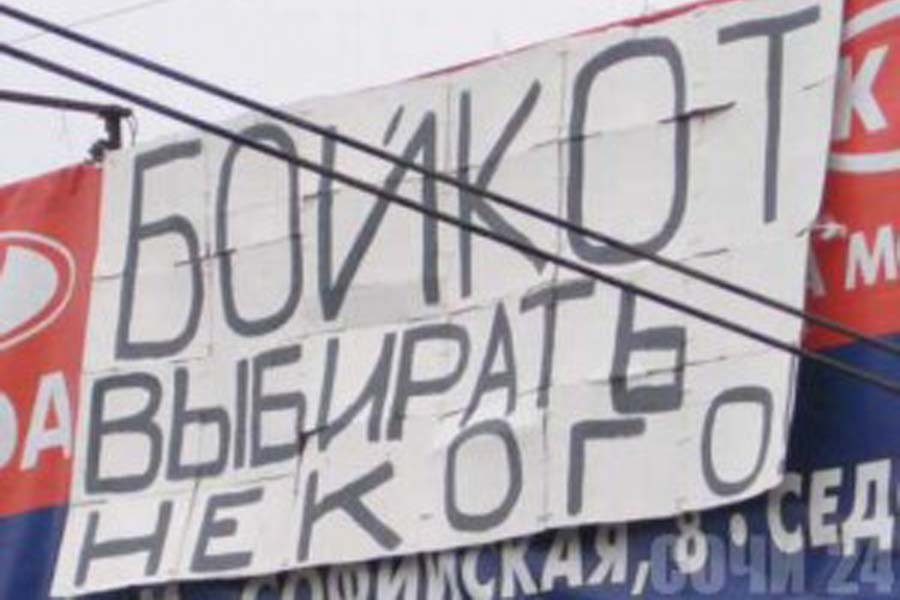 БОЙКОТ
ВЫБИРАТЬ
НЕКОГО
СОФИЙСКАЯ, 8 • СЕД
СОЧИ 24